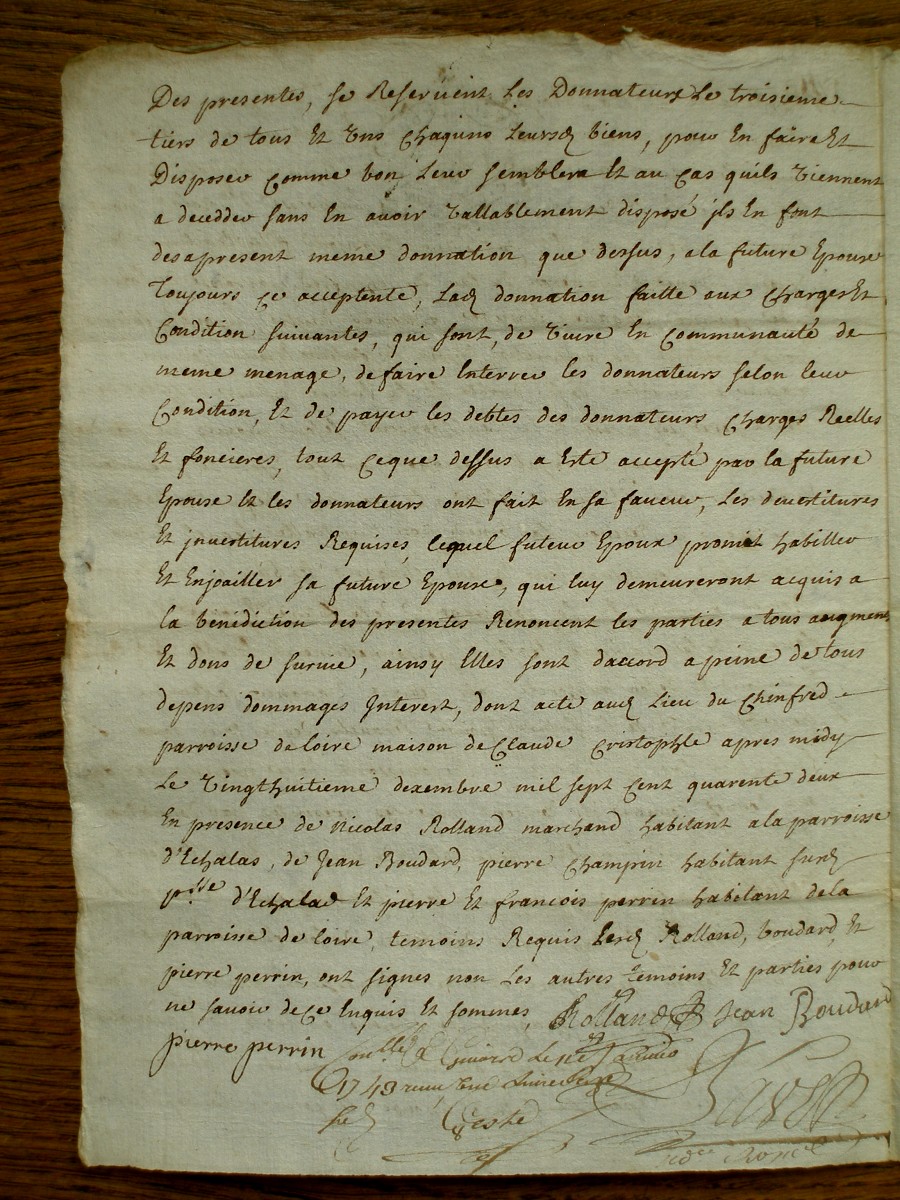 Des presentes, se Reservent Les Donnateurs Le troisieme
tiers de tous Et Uns chaquns Leursd biens, pour En faire Et
Disposer comme bon Leur semblera Et au cas quils viennent
a decedder sans En avoir vallablement disposé ils En font
desapresent meme donnation que dessus, a la future Epouse
Toujours ce acceptente, Lad donnation faitte aux charges Et
Condition suivantes, qui sont, de vivre En communauté de
meme menage, de faire Interrer les donnateurs selon leur
Condition, Et de payer les debtes des donnateurs charges Reelles
Et foncieres, tout ceque dessus a Esté accepté par la future
Epouse Et les donnateurs ont fait En sa faveur, Les devestitures
Et jnvestitures Requises, lequel futeur Epoux promet habiller
Et Enjoailler sa future Epouse, qui luy demeureront acquis a
la benediction des presentes Renoncent les parties a tous augment
Et dons de survie, ainsy Elles sont daccord a peine de tous
depens dommages Interest, dont acte aud Lieu du Chinfred
parroisse de loire maison de Claude Cristophle apres midy
Le vingthuitieme dexembre mil sept cent quarente deux
En presence de nicolas Rolland marchand habitant a la parroisse
d'Echalas, de Jean Boudard, pierre champin habitant surd
psse d'Echalas Et pierre Et francois perrin habitant de la
parroisse de loire, temoins Requis Lesd Rolland, boudard, Et
pierre perrin, ont signes non Les autres temoins Et parties pour
ne savoir de ce Enquis Et sommes, Rolland Jean Boudard
pierre perrin
1743